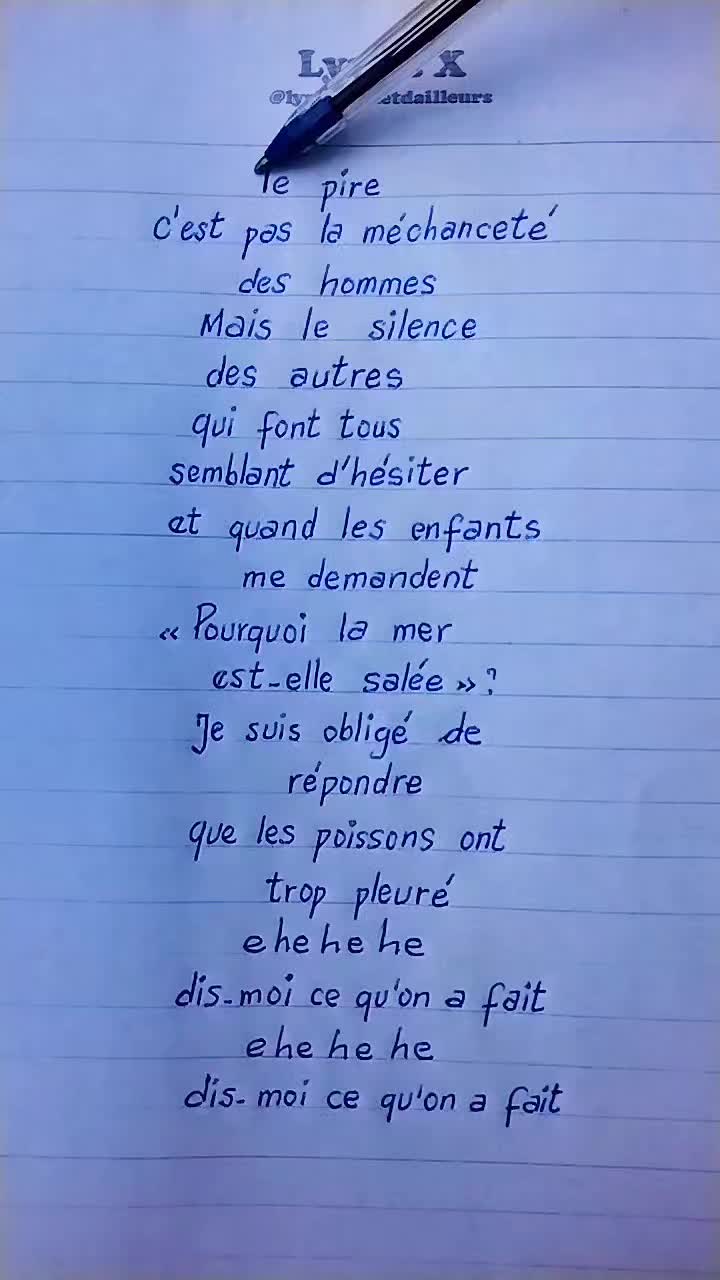 X
etdailleurs
le pire
c'est pas la méchanceté
des hommes
Mais le silence
des autres
qui font tous
semblant d'hésiter
et quand les enfants
me demandent
« Pourquoi la mer
est-elle salée » ?
Je suis obligé de
répondre
que les poissons ont
trop pleuré
e he he he
dis-moi ce qu'on a fait
e he he he
dis-moi ce qu'on a fait